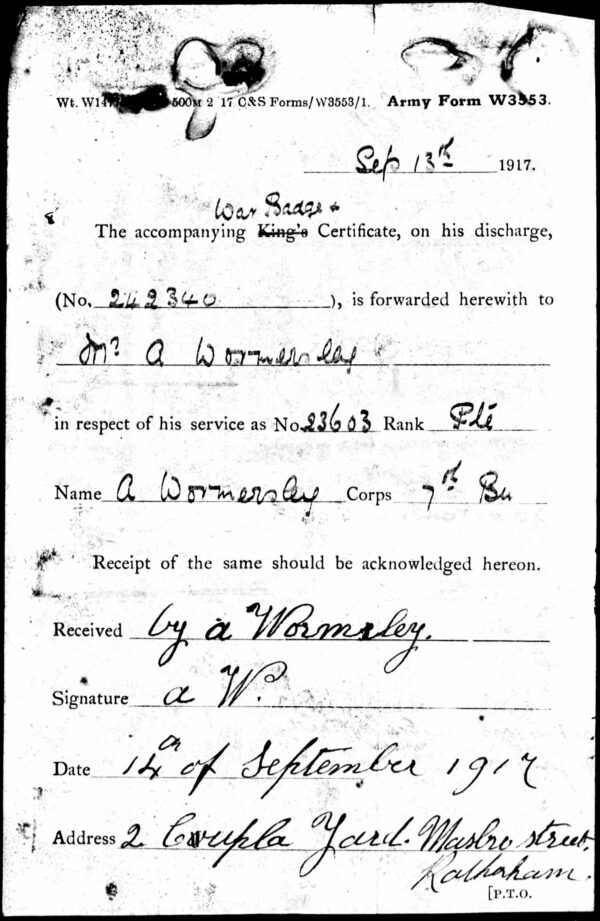 Wt. W14 500M 2 17 C&S Forms/W3553/1. Army Form W3553.
Sep 13th 1917.
War Badge +
The accompanying King's Certificate, on his discharge,
(No. 242340), is forwarded herewith to
Mr A Wormersley
in respect of his service as No. 23603 Rank Pte
Name A Wormersley Corps 7th Bn
Receipt of the same should be acknowledged hereon.
Received by a Wormsley.
Signature a W.
Date 14th of September 1917
Address 2 Yard. Masbro street,
Rotherham.
[P.T.O.